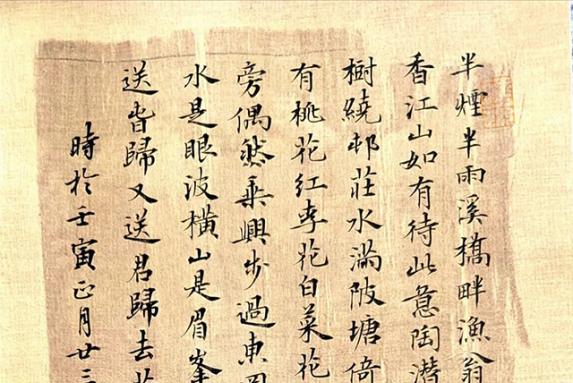 半煙半雨溪橋畔漁翁
香江山如有待此意陶潛
樹繞邨莊水滿陂塘倚
有桃花紅李花白菜花
旁偶然乘興步過東
水是眼波橫山是眉峯
送春歸又送君歸去
時於壬寅正月廿三